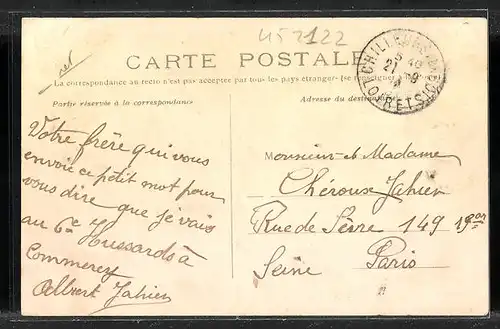 457122
CARTE POSTALE
La correspondance au recto n'est pas acceptée par tous les pays étrangers (se renseigner
Partie réservée à la correspondance
Adresse du destinataire
Votre frère qui vous
envoie ce petit mot pour
vous dire que je vais
au 6e Hussards à
Commercy
Albert Jahier
Monsieur et Madame
Chéroux Jahier
Rue de Sèvre 149
Paris
Seine